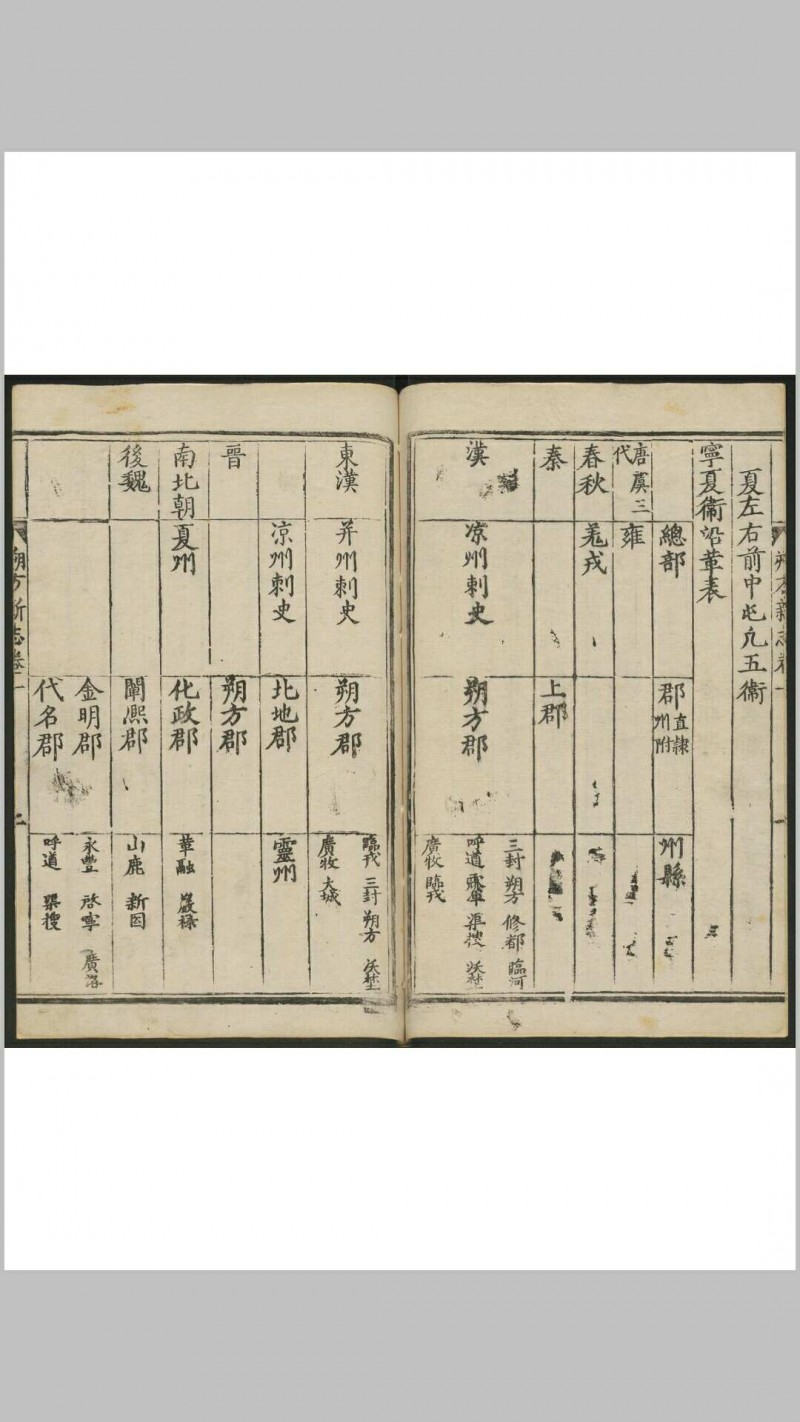 夏左右前中屯凡五衞
寧夏衞沿革表
總部
郡 直隸州附
州縣
唐虞三代
雍
春秋
羌戎
秦
上郡
漢
凉州刺史
朔方郡
三封 朔方 修都 臨河
呼道 窳渾 渠搜 沃埜
廣牧 臨戎
東漢
并州刺史
朔方郡
臨戎 三封 朔方 沃埜
廣牧 大城
凉州刺史
北地郡
靈州
晉
朔方郡
南北朝
夏州
化政郡
華融 巖祿
後魏
闡熙郡
山鹿 新囙
金明郡
永豐 啓寧 廣洛
代名郡
呼道 渠搜
朔方新志卷一